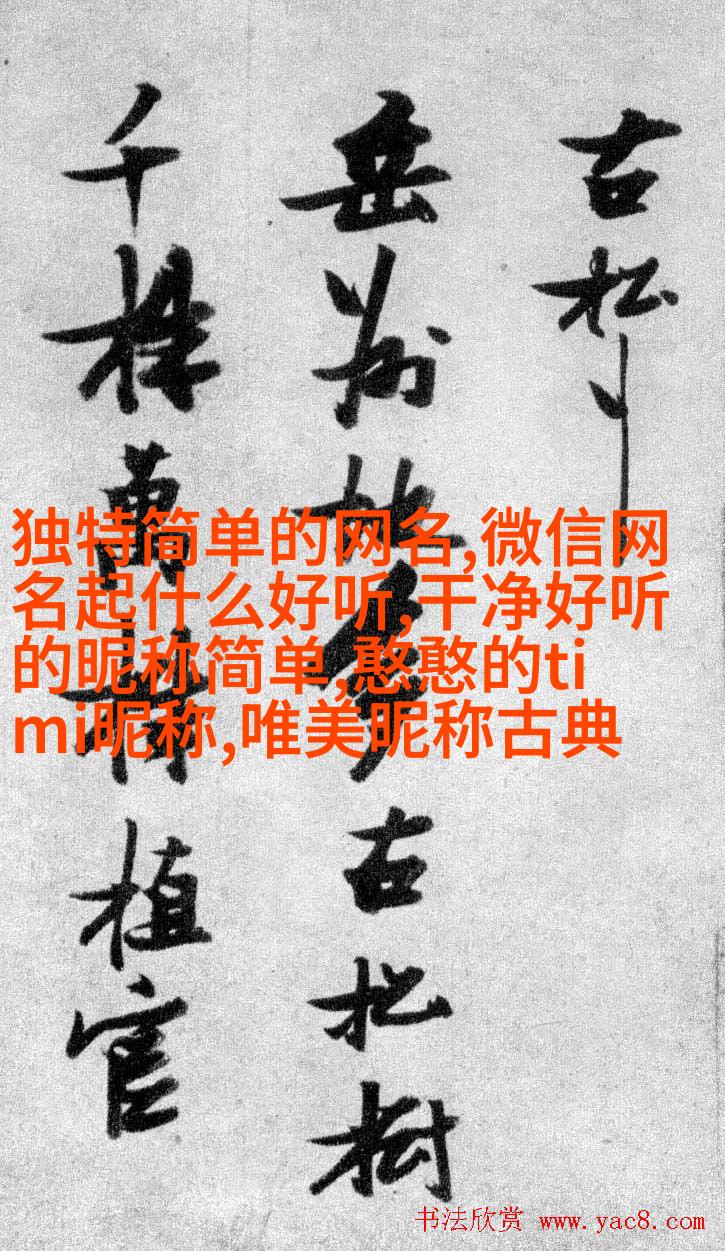 古松
岳州地多古松樹
千株萬株植官
独特简单的网名,微信网
名起什么好听,干净好听
的昵称简单,憨憨的ti
mi昵称,唯美昵称古典
书法欣赏 www.yac8.com